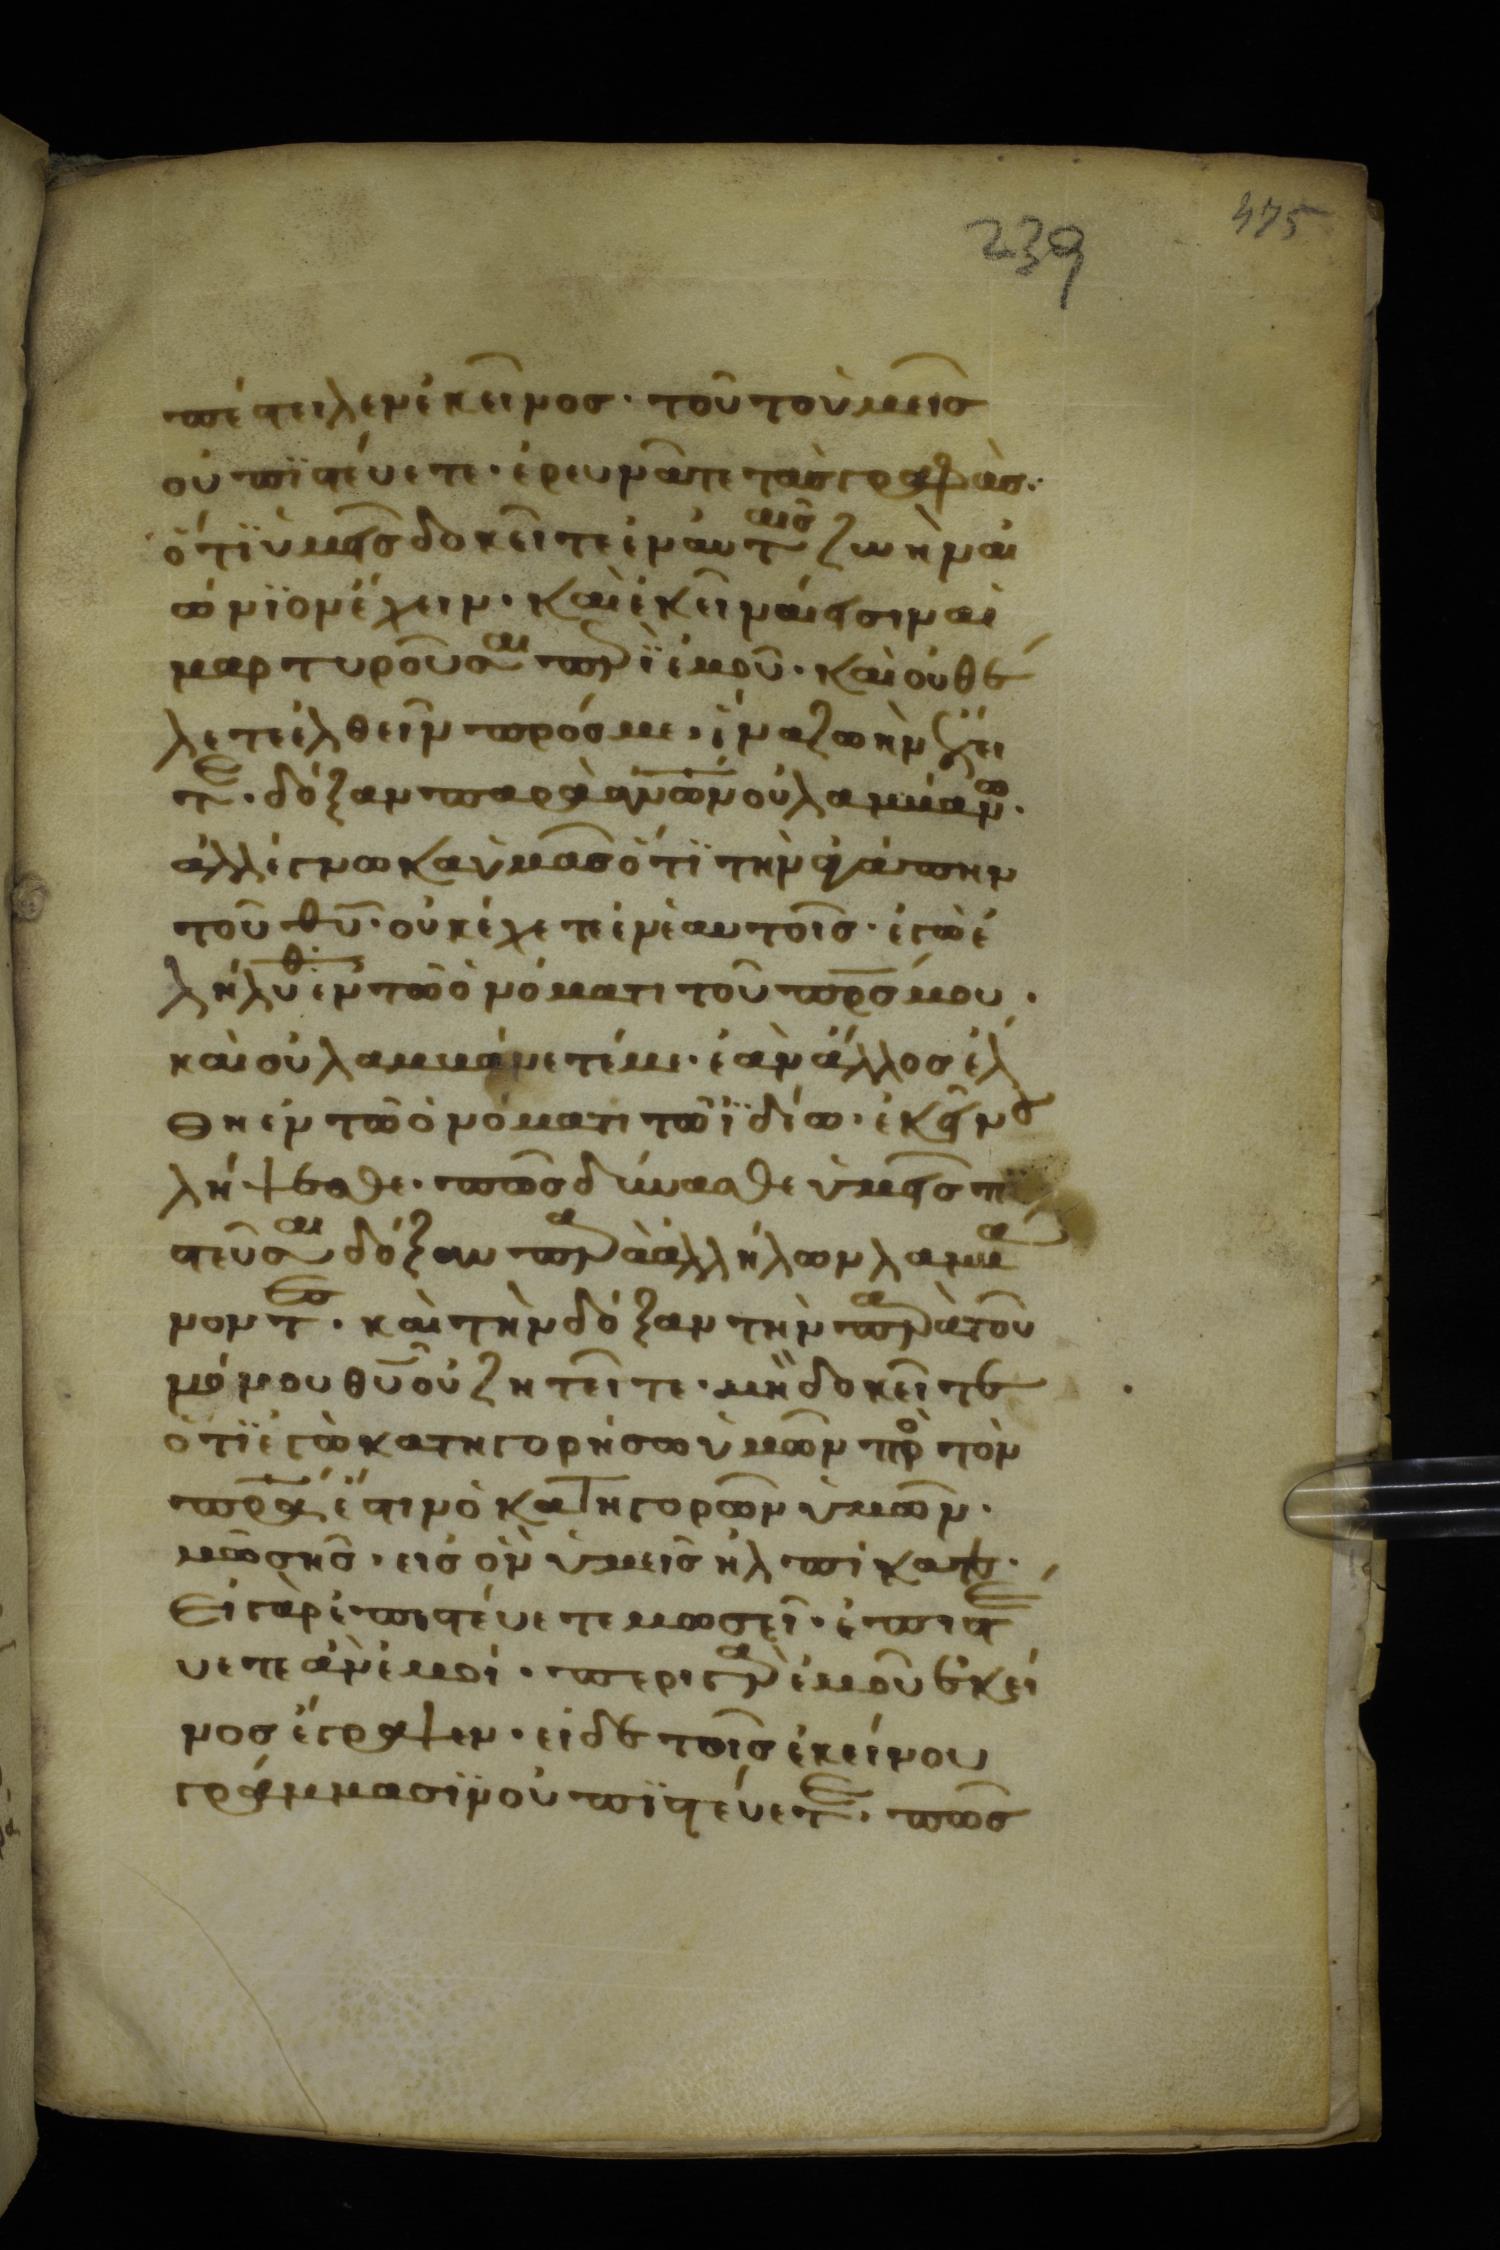 239
475
πέστειλεν ἐκεῖνος · τοῦτο ὑμεῖς
οὐ πϊστέυετε · ἐρευνᾶτε τὰς γραφάς ·
ὅτϊ ὑμεῖς δοκεῖτε ἐν ἀυταῖς ζωὴν αἰ
ώνϊον ἔχειν · καὶ ἐκεῖναί εἰσιν αἱ
μαρτυροῦσαι περὶ ἐμοῦ · καὶ οὐ θέ
λετε ἐλθεῖν πρός με · ἵνα ζωὴν ἔχη
τε · δόξαν παρὰ ἀν̅ω̅ν οὐ λαμβάνω ·
ἀλλ ἔγνωκα ὑμᾶς ὅτϊ τὴν ἀγάπην
τοῦ θ̅υ̅ · οὐκ ἔχετε ἐν ἑαυτοῖς · ἐγὼ ἐ
λήλυθα ἐν τῶ ὀνόματι τοῦ π̅ρ̅ς μου ·
καὶ οὐ λαμβάνετέ με · ἐὰν ἄλλος ἔλ
θη ἐν τῶ ὀνόματι τῶ ϊδίω · ἐκεῖνον
λήψεσθε · πῶς δύνασθε ὑμεῖς πϊ
στεῦσαι δόξαν παρὰ ἀλλήλων λαμβά
νοντες · καὶ τὴν δόξαν τὴν παρὰ τοῦ
μόνου θ̅υ̅ οὐ ζητεῖτε · μὴ δοκεῖτε
ὅτϊ ἐγὼ κατηγορήσω ὑμῶν πρὸ τὸν
π̅ρ̅α · ἔστιν ὁ κατηγορῶν ὑμῶν ·
μωσῆς · εἰς ὃν ὑμεῖς ἠλπίκατε ·
Εἰ γὰρ ἐπιστέυετε μωσεῖ · ἐπιστέ
υετε ἂν ἐμοί · περὶ γὰρ ἐμοῦ ἐκεῖ
νος ἔγραψεν · εἰ δὲ τοῖς ἐκείνου
γράμμασϊν οὐ πϊστέυετε · πῶς